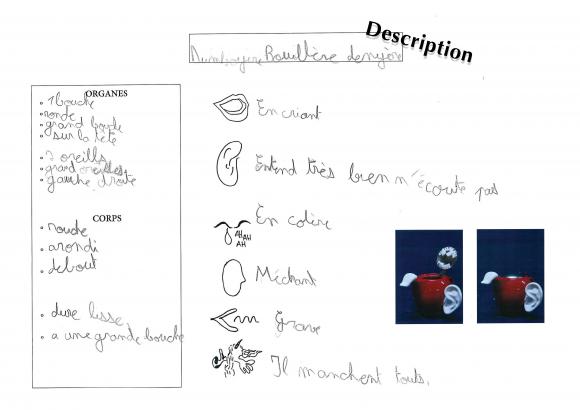 Description
Rouillère denyère
ORGANES
• 1 bouche
• ronde
• grand boule
• sur la tête
• 2 oreills
• grand oreilles,
gauche droite
CORPS
• rouche
• arondi
• debout
• dure lisse
• a une grande bouche
En criant
Entend très bien n'écoute pas
En colère
AH AH
AH
Méchant
Grave
Il manchent touts.